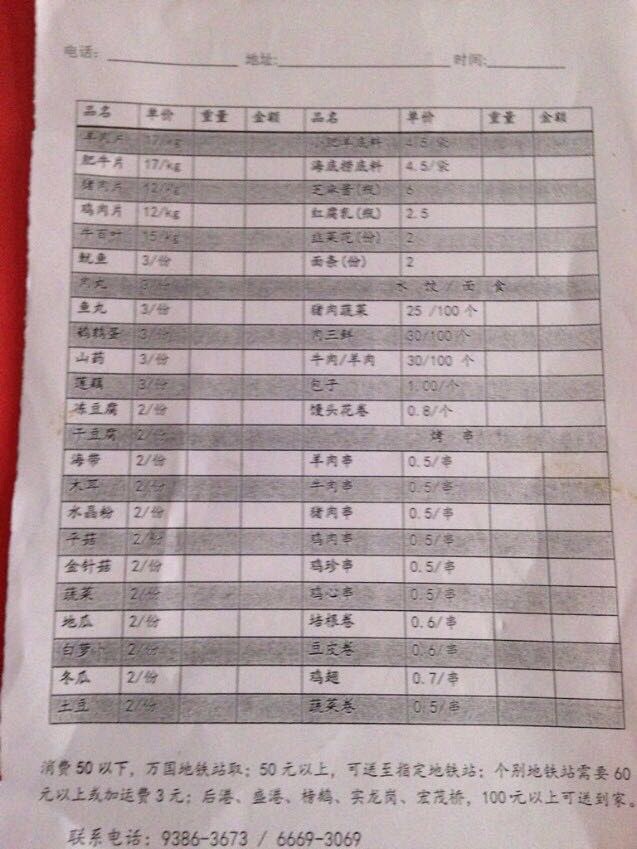 电话: 地址: 时间:
品名 单价 重量 金额 品名 单价 重量 金额
羊肉片 17/kg 小肥羊底料 4.5/袋
肥牛片 17/kg 海底捞底料 4.5/袋
猪肉片 12/kg 芝麻酱(瓶) 6
鸡肉片 12/kg 红腐乳(瓶) 2.5
牛百叶 15/kg 韭菜花(份) 2
鱿鱼 3/份 面条(份) 2
肉丸 3/份 水 饺 / 面 食
鱼丸 3/份 猪肉蔬菜 25 /100 个
鹌鹑蛋 3/份 肉三鲜 30/100 个
山药 3/份 牛肉/羊肉 30/100 个
莲藕 3/份 包子 1.00/个
冻豆腐 2/份 馒头花卷 0.8/个
干豆腐 2/份 烤 串
海带 2/份 羊肉串 0.5/串
木耳 2/份 牛肉串 0.5/串
水晶粉 2/份 猪肉串 0.5/串
平菇 2/份 鸡肉串 0.5/串
金针菇 2/份 鸡珍串 0.5/串
蔬菜 2/份 鸡心串 0.5/串
地瓜 2/份 培根卷 0.6/串
白萝卜 2/份 豆皮卷 0.6/串
冬瓜 2/份 鸡翅 0.7/串
土豆 2/份 蔬菜卷 0.5/串
消费 50 以下，万国地铁站取；50 元以上，可送至指定地铁站；个别地铁站需要 60
元以上或加运费 3 元；后港、盛港、榜鹅、实龙岗、宏茂桥，100 元以上可送到家。
联系电话：9386-3673 / 6669-3069